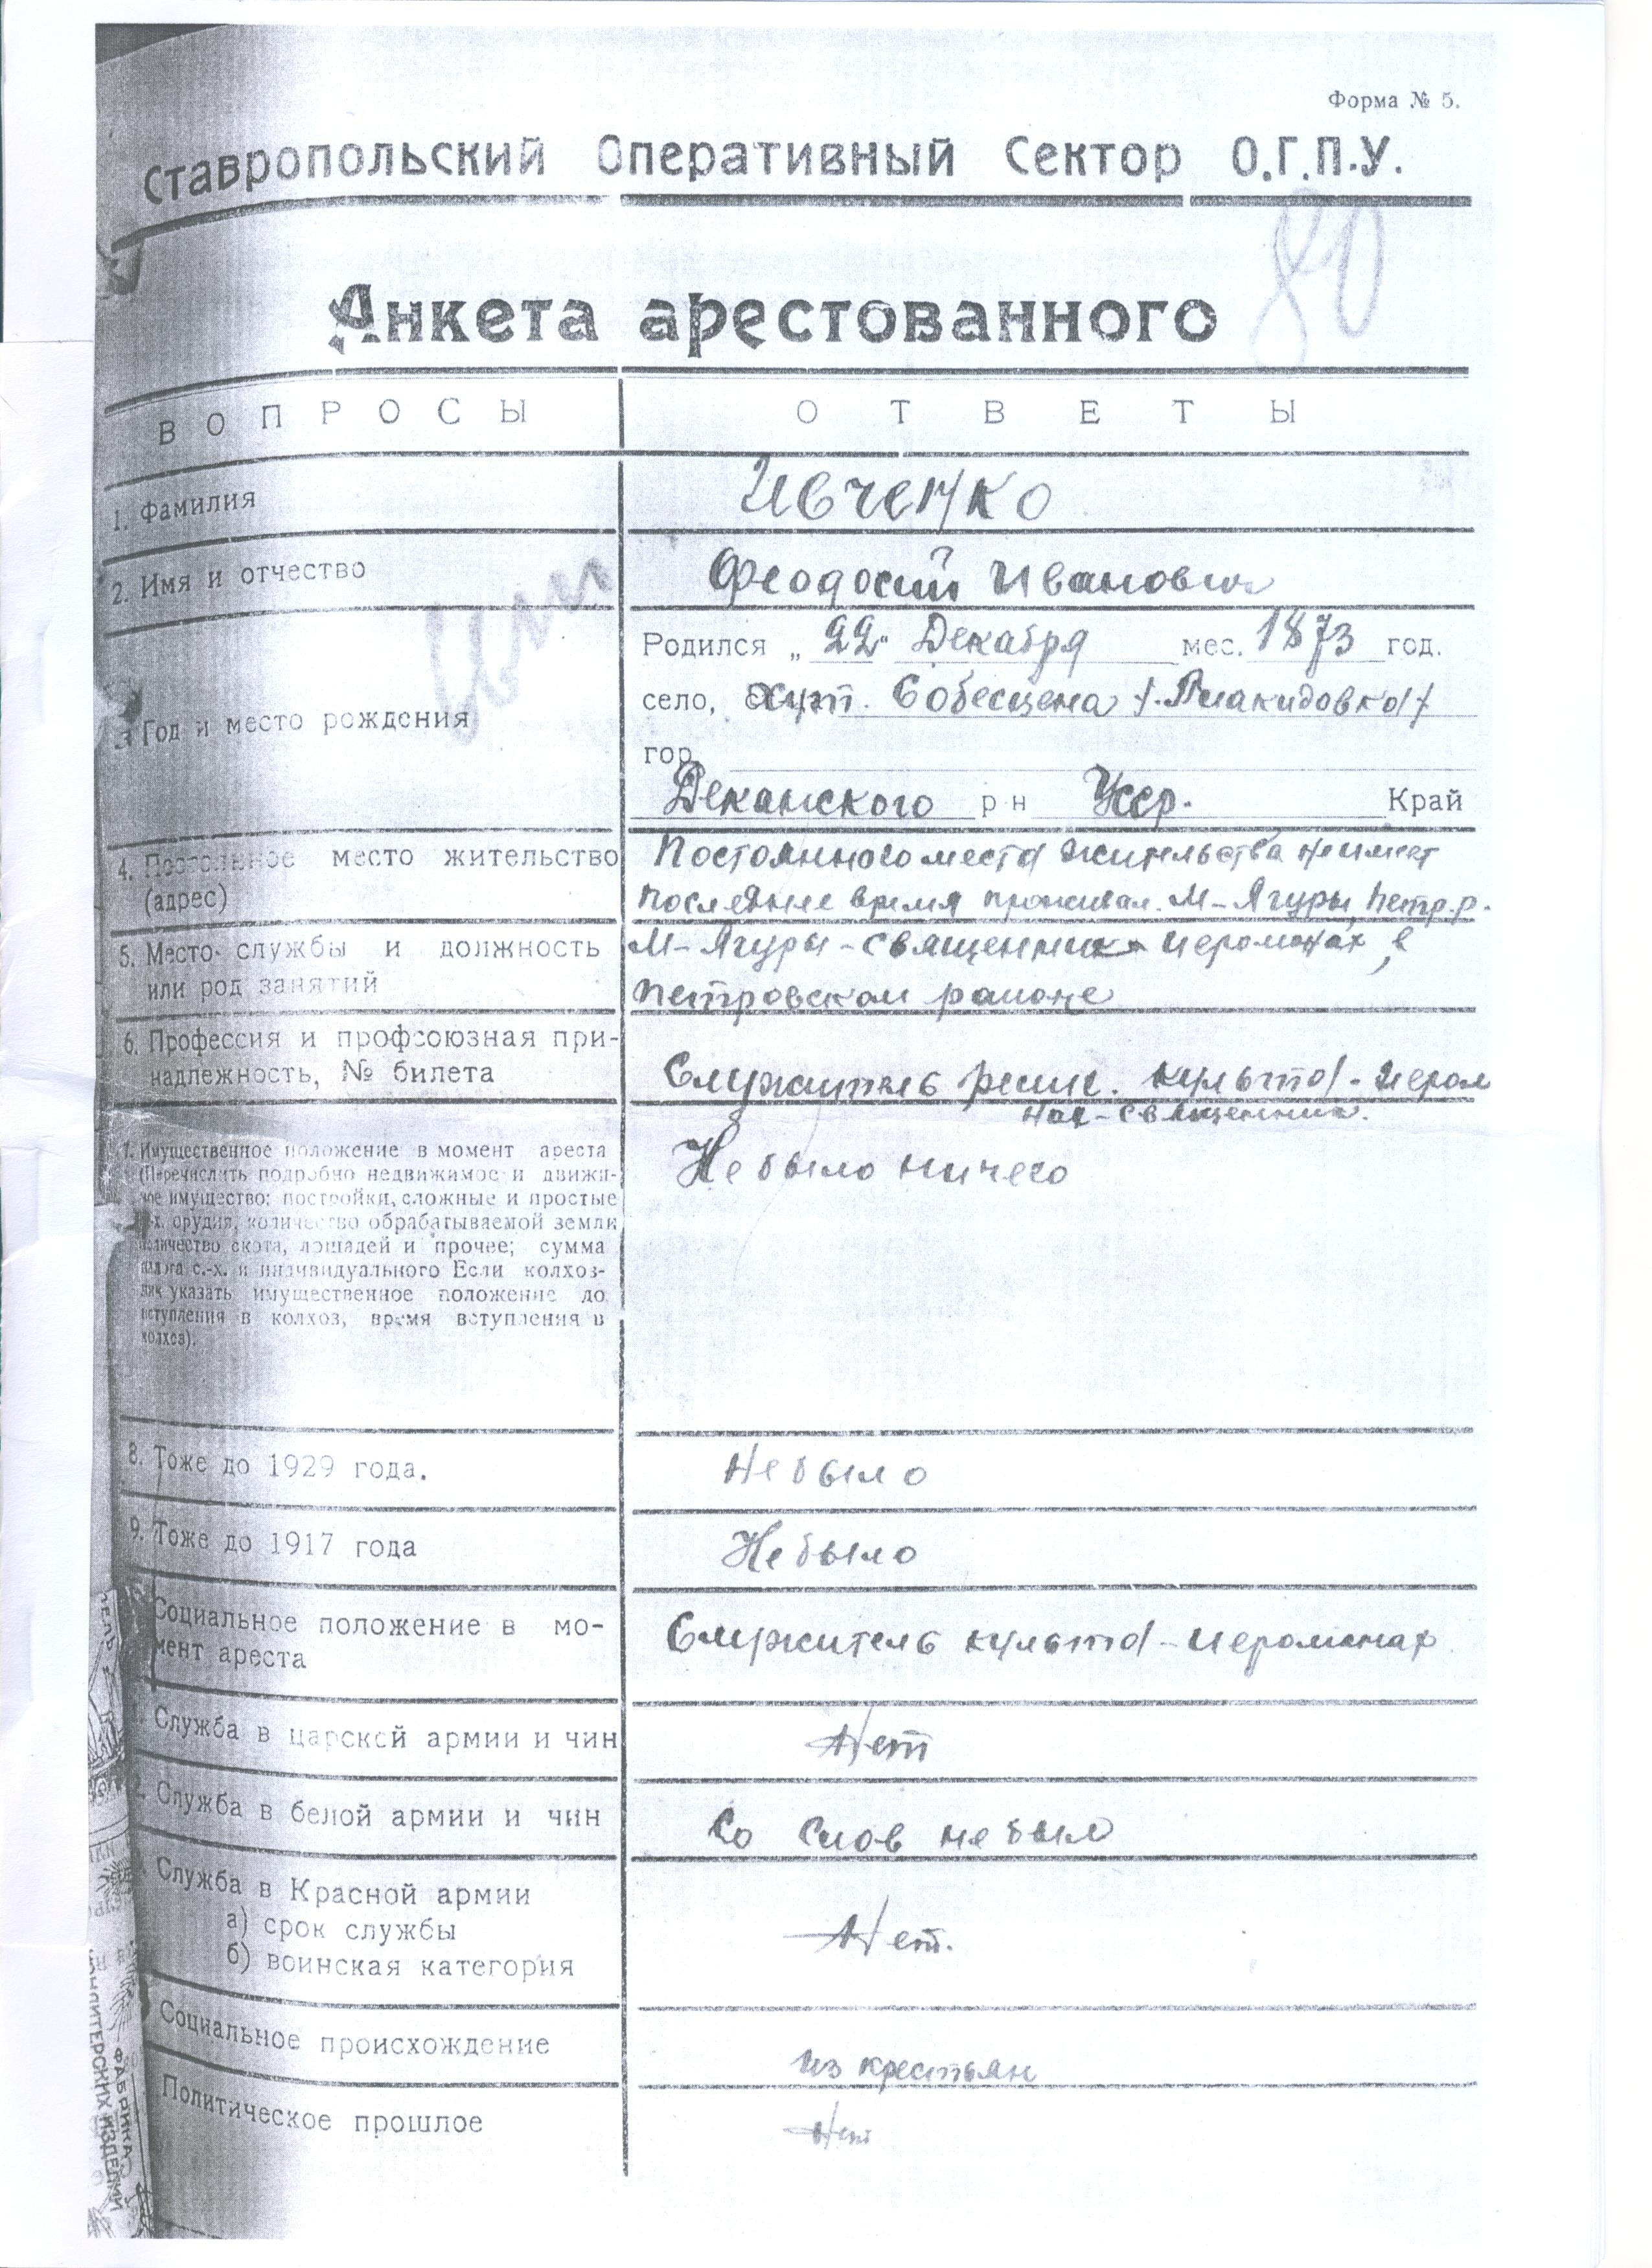 Форма № 5.
Ставропольский Оперативный Сектор О.Г.П.У.
80
Анкета арестованного
ВОПРОСЫ ОТВЕТЫ
1. Фамилия Ивченко
2. Имя и отчество Феодосий Иванович
3 Год и место рождения
Родился „22" Декабря мес. 1873 год.
село, хут.
гор.
Деканского р-н Усср. Край
4. Постоянное место жительство Постоянного места жительства не имеет
(адрес) последнее время проживал. М-Ягуры Петр.р.
5. Место службы и должность М-Ягуры-священник иеромонах, в
или род занятий Петровском районе
6. Профессия и профсоюзная при-
надлежность, № билета Служитель религ. культа-иером
нах-священник.
7. Имущественное положение в момент ареста Не было ничего
(Перечислить подробно недвижимое и движи-
мое имущество: постройки, сложные и простые
с.-х. орудия, количество обрабатываемой земли,
количество скота, лошадей и прочее; сумма
налога с.-х. и индивидуального Если колхоз-
ник указать имущественное положение до
вступления в колхоз, время вступления в
колхоз).
8. Тоже до 1929 года. Не было
9. Тоже до 1917 года Не было
Социальное положение в мо-
мент ареста Служитель культа-иеромонах
Служба в царской армии и чин Нет
Служба в белой армии и чин Со слов не был
Служба в Красной армии
а) срок службы Нет.
б) воинская категория
Социальное происхождение из крестьян
Политическое прошлое Нет
ФАБРИКА
КОНДИТЕРСКИХ ИЗДЕЛИЙ